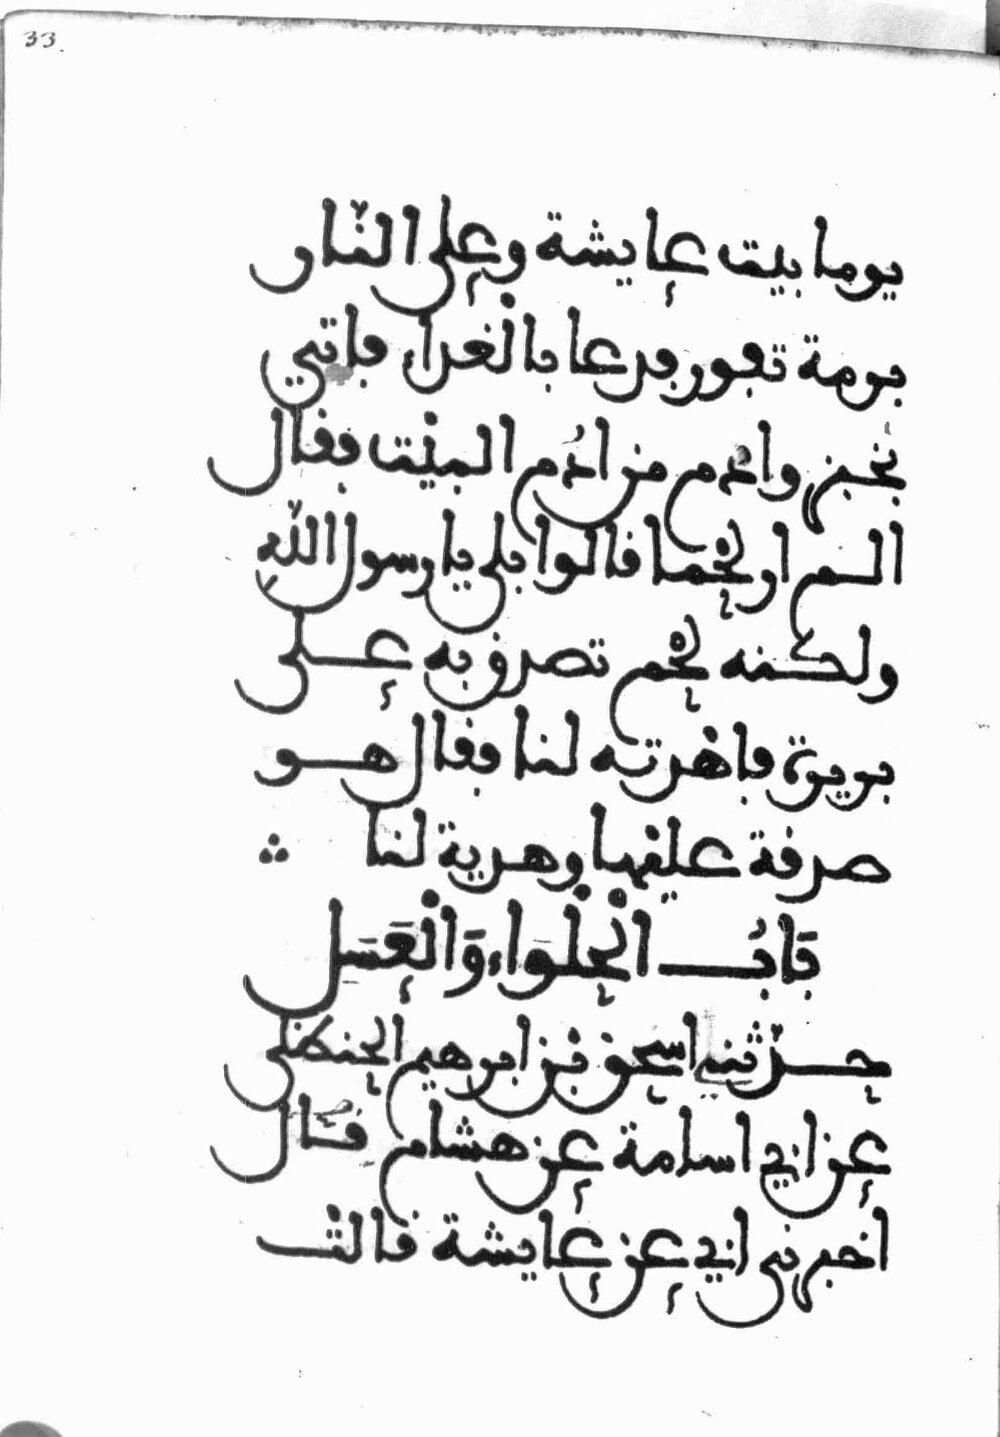 33.
يوما بيت عايشة وعلى النار
برمة تفور فدعا بالغداء فاتي
بخبز وادم من ادم البيت فقال
الم ار لحما قالوا بلى يا رسول الله
ولكنه لحم تصدق به على
بريرة فاهدته لنا فقال هو
صدقة عليها وهدية لنا ∴
بَابُ الْحَلْوَاءِ وَالْعَسَل
حدثني اسحق بن ابرهيم الحنظلي
عن ابي اسامة عن هشام قال
اخبرني ابي عن عايشة قالت